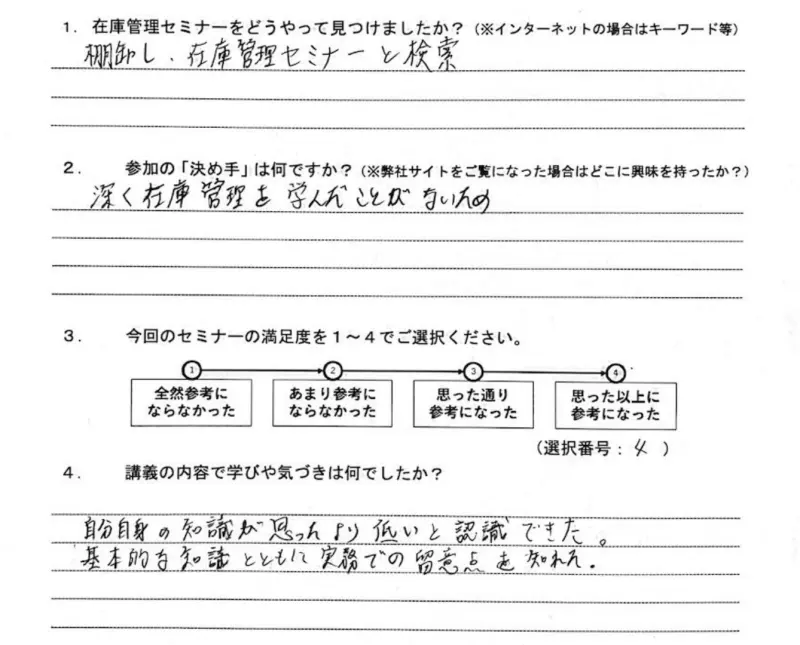 1. 在庫管理セミナーをどうやって見つけましたか？（※インターネットの場合はキーワード等）
棚卸し、在庫管理セミナーと検索
2. 参加の「決め手」は何ですか？（※弊社サイトをご覧になった場合はどこに興味を持ったか？）
深く在庫管理を学んだことがないため
3. 今回のセミナーの満足度を１～４でご選択ください。
① ② ③ ④
全然参考にならなかった
あまり参考にならなかった
思った通り参考になった
思った以上に参考になった
（選択番号：4）
4. 講義の内容で学びや気づきは何でしたか？
自分自身の知識が思ったより低いと認識できた。
基本的な知識とともに実務での留意点を知れた。